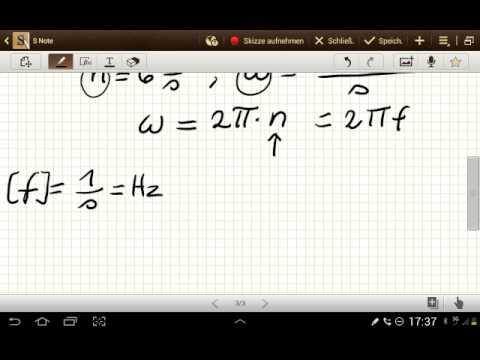 S Note
Skizze aufnehmen
Schließ.
Speich.
n = 6 1/s , ω =
s
ω = 2π · n = 2πf
↑
[f] = 1/s = Hz
3/3
17:37